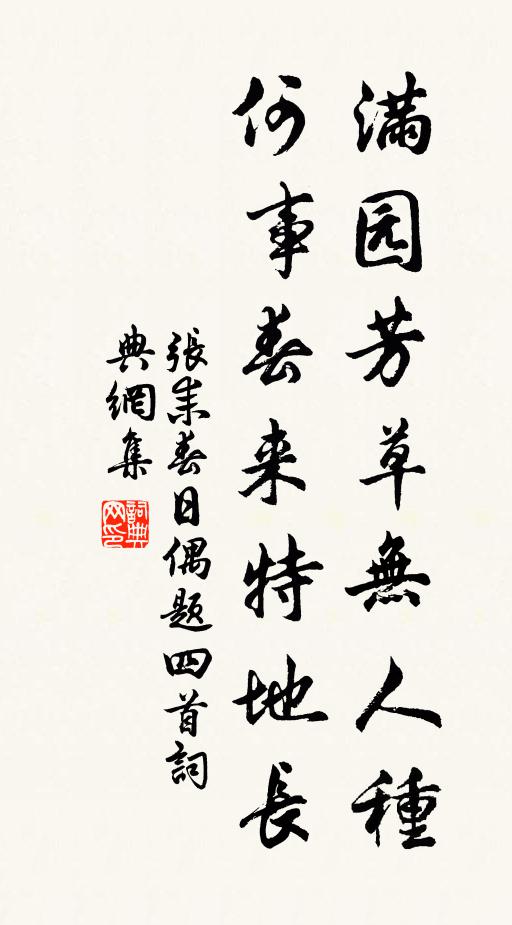 满园芳草無人種
何事春来特地長
張耒春日偶题四首詞
典網集
詞典
网印